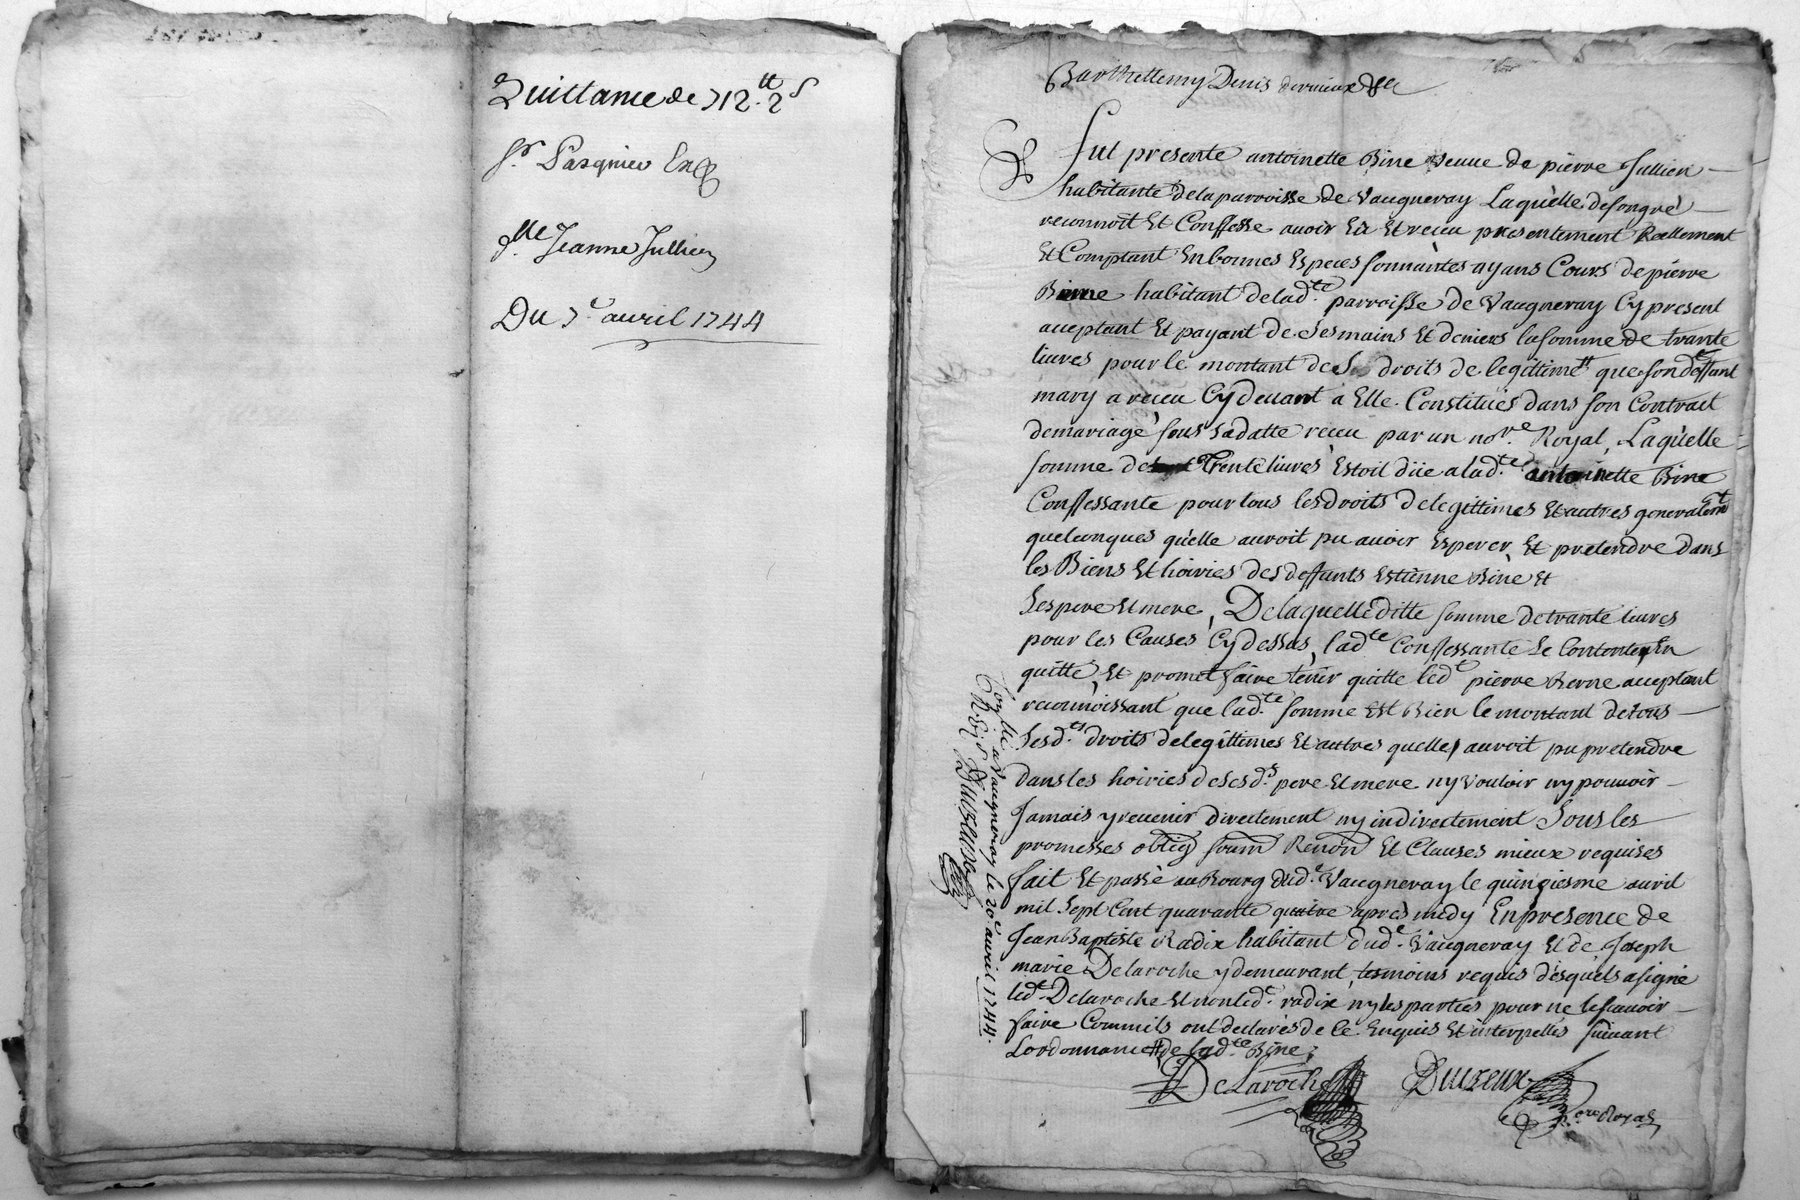 Quittance de 712.tt 2s
Sr. Pasquier
dlle. Jeanne Jullien
Du 7e. avril 1744
Barthellemy Denis
Fut presente antoinette Bine veuve de pierre Jullien
habitante de la parroisse de Vaugneray Laquelle de son gré
reconnoit Et Confesse avoir Eu Et receu presentement Reellement
Et Comptant En bonnes Especes sonnantes ayans Cours de pierre
habitant de lad.te parroisse de Vaugneray Cy present
acceptant Et payant de ses mains Et deniers la somme de trante
livres pour le montant de droits de legittimes que son deffunt
mary a receu Cy devant a Elle Constitués dans son Contrait
de mariage sous sa datte receu par un no.re Royal, Laquelle
somme de trente livres Estoit düe a lad.te antoinette Bine
Conffessante pour tous les droits de legittimes Et autres generalemt
quelconques qu'elle auroit pu avoir Esperer Et pretendre dans
les Biens Et hoiries des deffunts Estienne Bine Et
Ses pere Et mere, De laquelle ditte somme de trante livres
pour les Causes Cy dessus, lad.te Conffessante Se Contente, En
quitte, Et promet faire tenir quitte led.t pierre Berne acceptant
reconnoissant que lad.te somme Est Bien le montant de tous
Sesd.ts droits de legittimes Et autres quelle auroit pu pretendre
dans les hoiries de Sesd.s pere Et mere ny Vouloir ny pouvoir
Jamais y revenir directement ny indirectement Sous les
promesses oblig soum Renon Et Clauses mieux requises
fait Et passé au Bourg dud.t Vaugneray le quinziesme avril
mil Sept Cent quarante quatre apres midy En presence de
Jean Baptiste Radix habitant dud.t Vaugneray Et de Joseph
marie Delaroche y demeurant, tesmoins requis desquels a signé
led.t Delaroche Et non led.t radix ny les parties pour ne le scavoir
faire Comm'ils ont declarés de ce Enquis Et interpellés suivant
Lordonnance de lad.te Bine;
DeLaroche
Duizeux
no.re Royal
Controllé a Vaugneray le 20e. avril 1744.